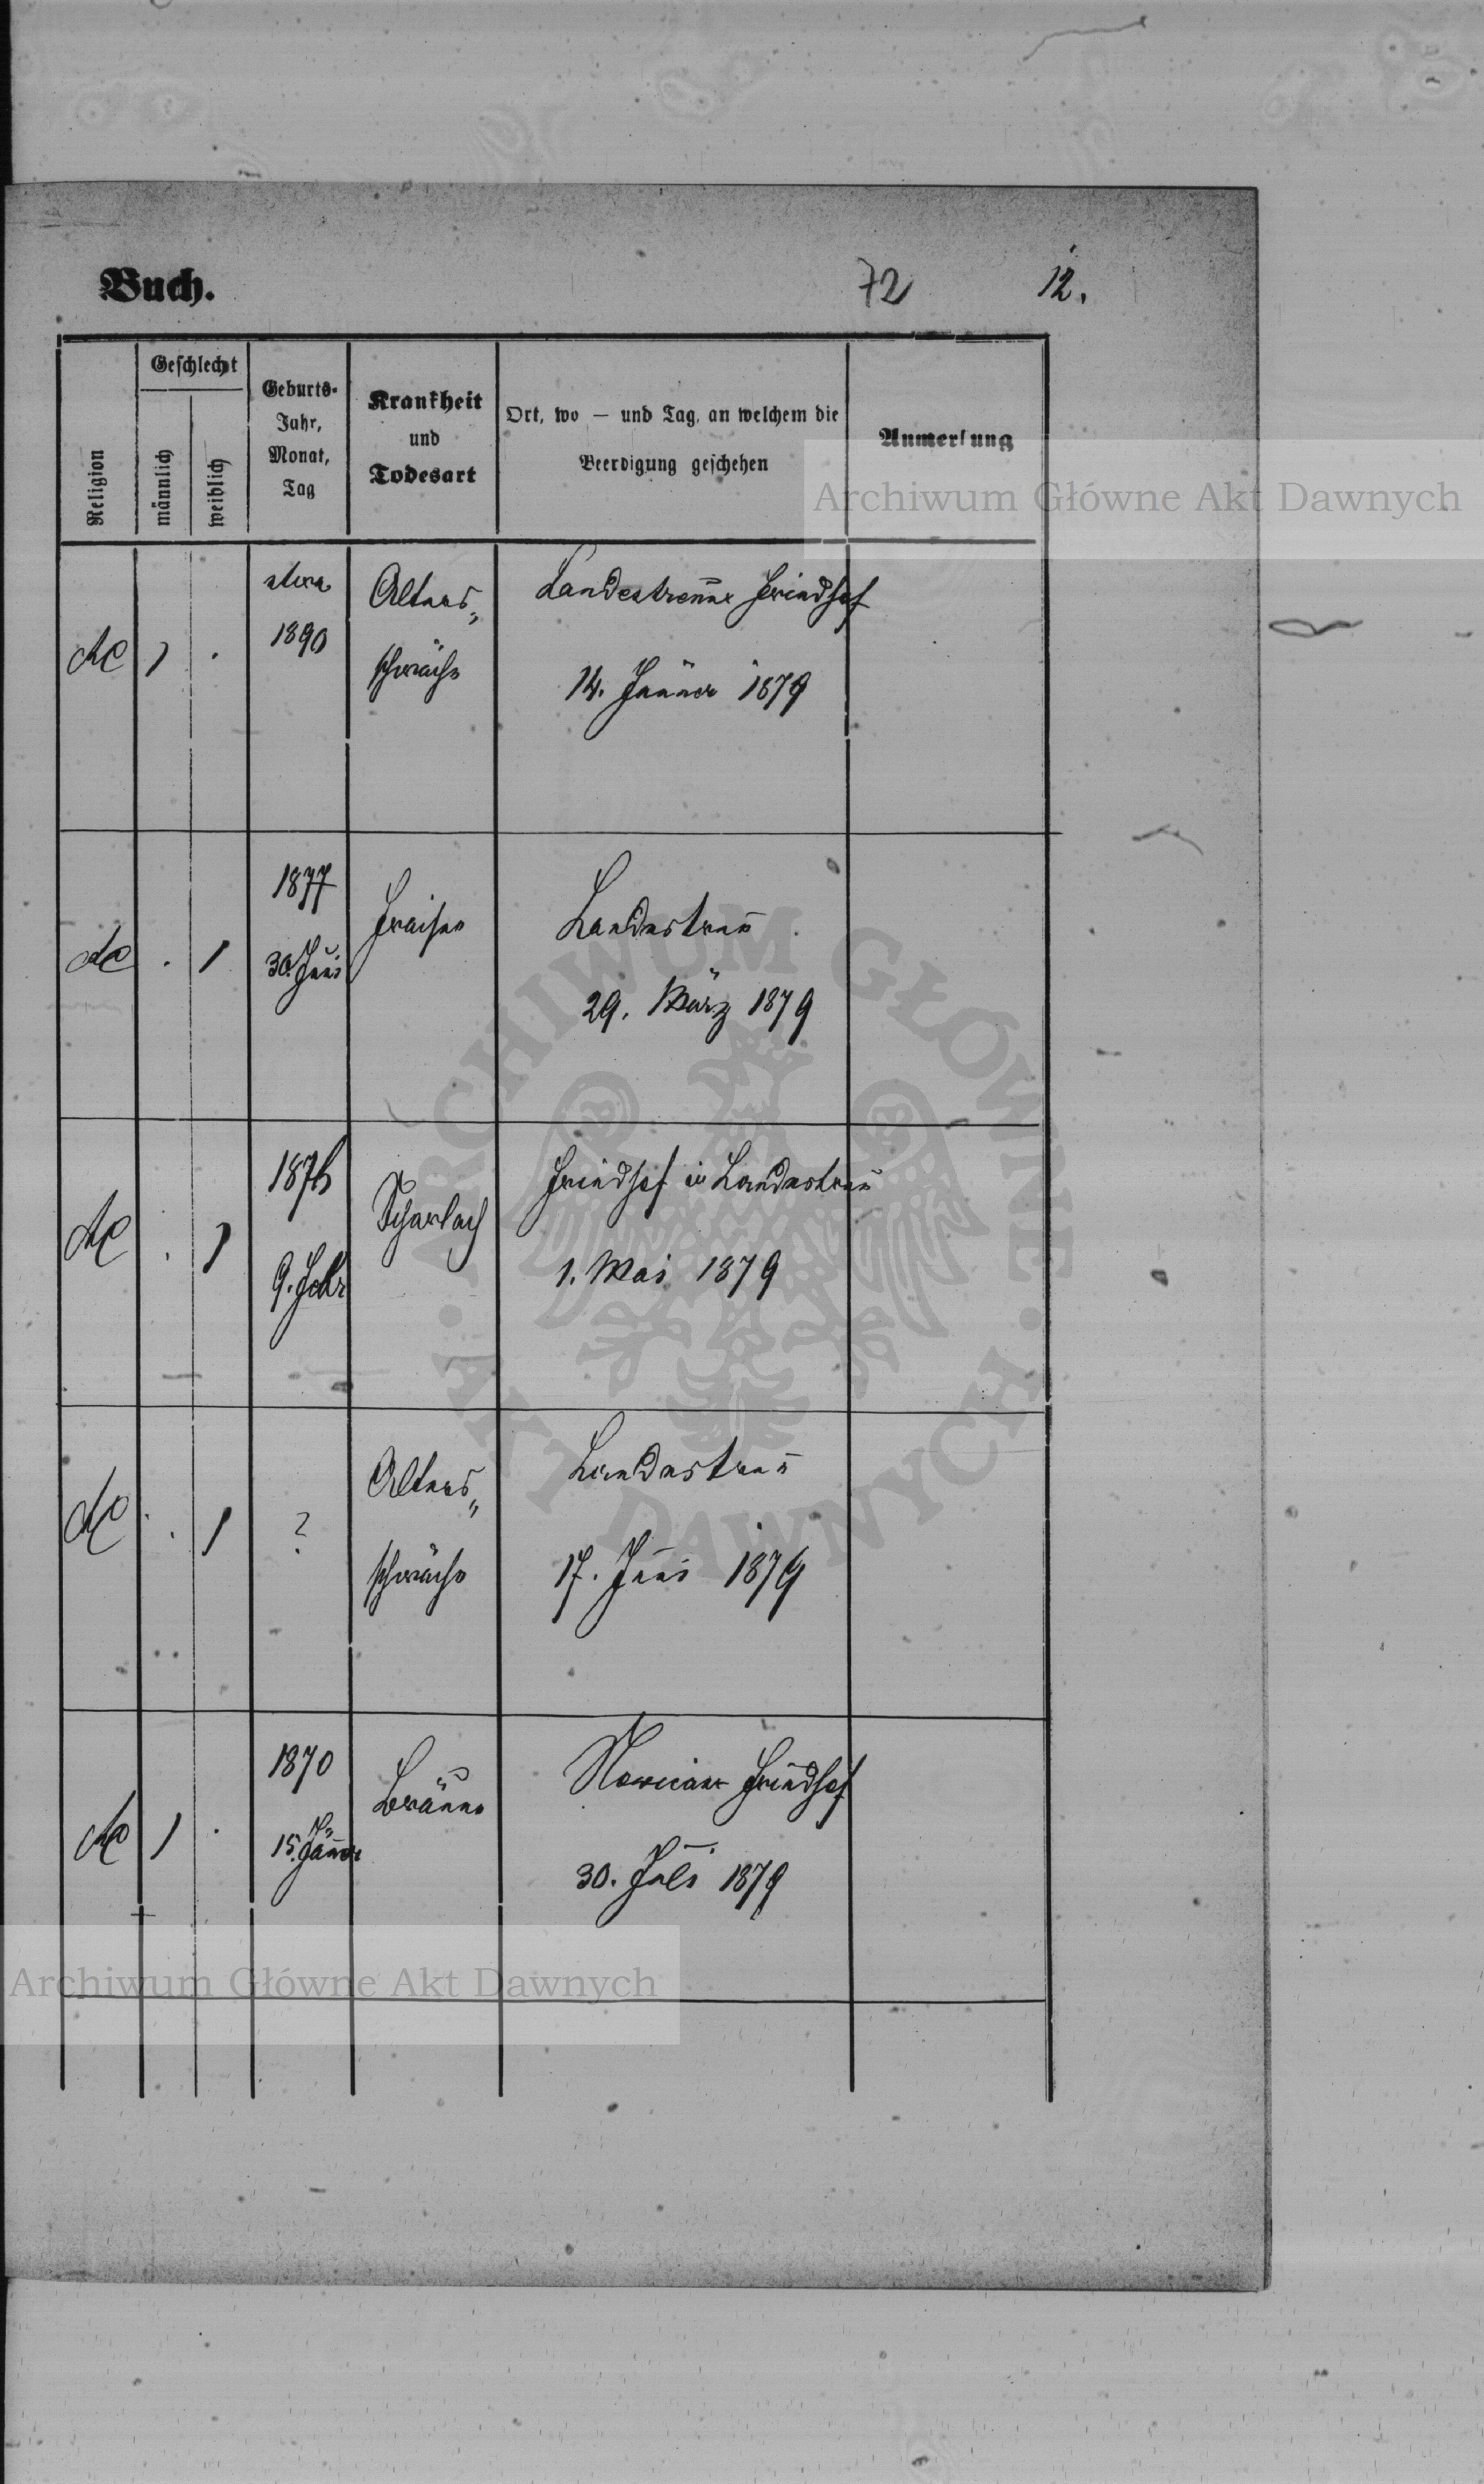 Buch.
72
12.
Religion
Geschlecht
männlich
weiblich
Geburts-
Jahr,
Monat,
Tag
Krankheit
und
Todesart
Ort, wo — und Tag, an welchem die
Beerdigung geschehen
Anmerkung
Archiwum Główne Akt Dawnych
AC
1
.
etwa
1890
Alters„
schwäche
Landestreuer Friedhof
14. Jänner 1879
AC
.
1
1877
30. Juni
Fraisen
Landestreu
29. März 1879
AC
.
1
9. Febr
Scharlach
Friedhof in Landestreu
1. Mai 1879
AC
.
1
?
Alters„
schwäche
Landestreu
17. Juni 1879
AC
1
.
1870
15. Jänner
Bräune
Friedhof
30. Juli 1879
ARCHIWUM GŁÓWNE
AKT DAWNYCH
Archiwum Główne Akt Dawnych